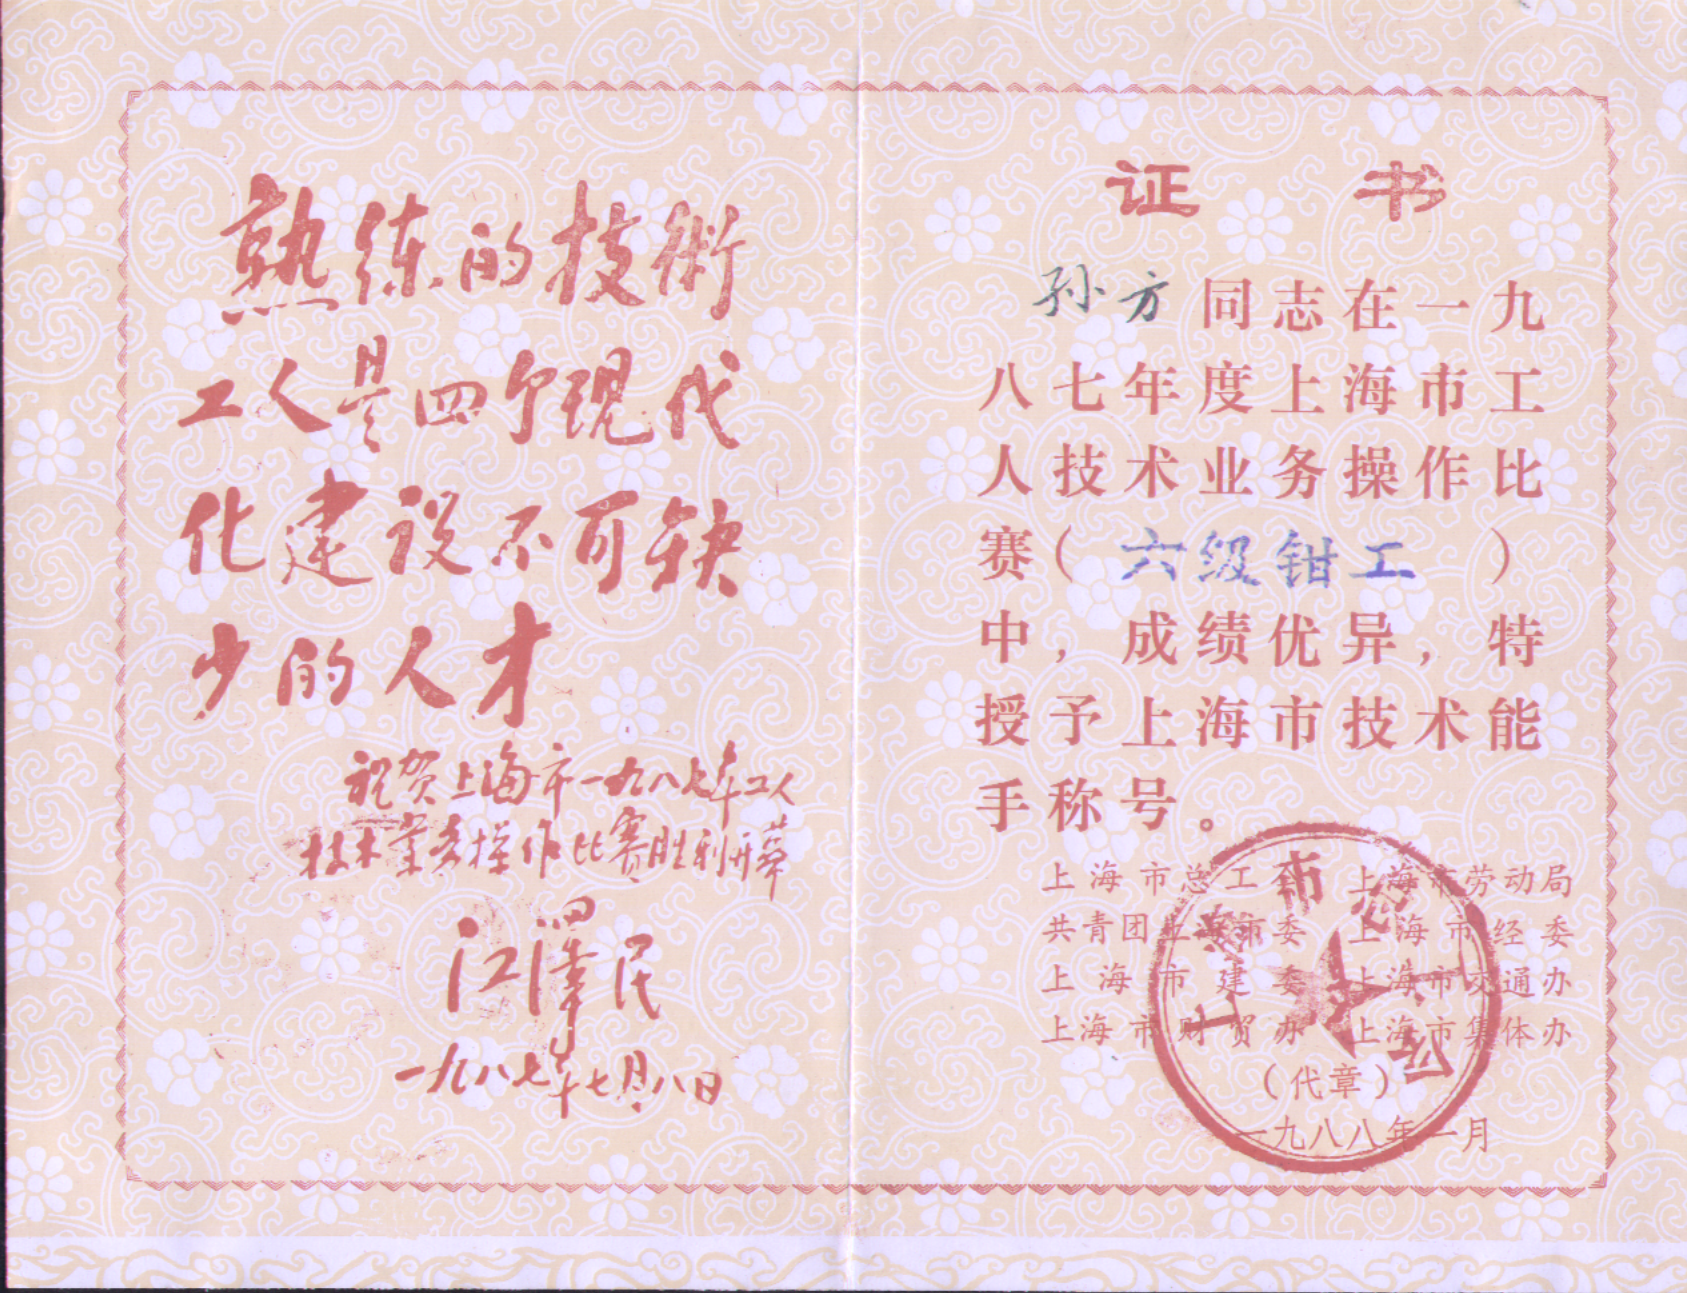 熟练的技術
工人是四个现代
化建设不可缺
少的人才
祝贺上海市一九八七年工人
技术业务操作比赛胜利开幕
江澤民
一九八七年七月八日
证书
孙方同志在一九
八七年度上海市工
人技术业务操作比
赛（六级钳工）
中，成绩优异，特
授予上海市技术能
手称号。
上海市总工会 上海市劳动局
共青团上海市委 上海市经委
上海市建委 上海市交通办
上海市财贸办 上海市集体办
（代章）
一九八八年一月